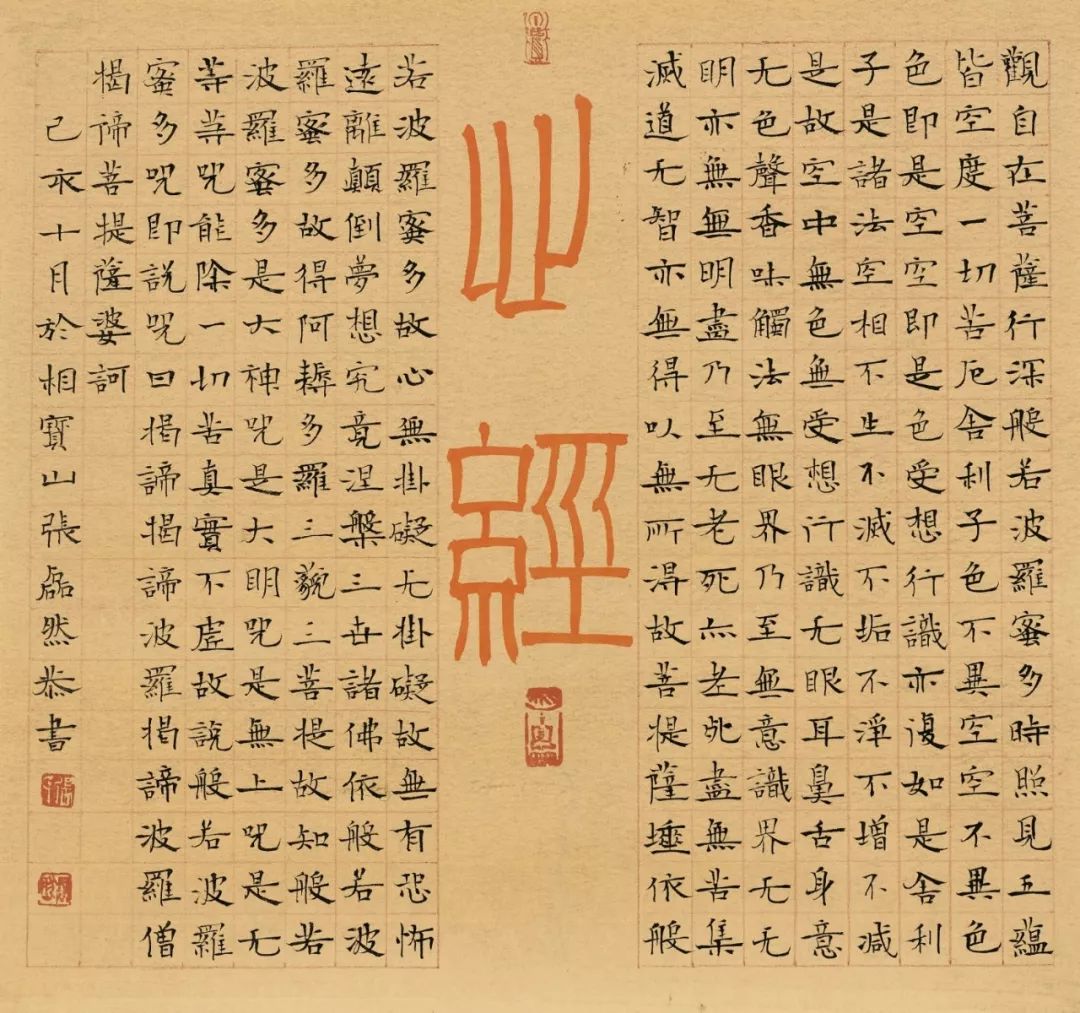 觀自在菩薩行深般若波羅蜜多時照見五蘊
皆空度一切苦厄舍利子色不異空空不異色
色即是空空即是色受想行識亦復如是舍利
子是諸法空相不生不滅不垢不淨不增不減
是故空中無色無受想行識无眼耳鼻舌身意
无色聲香味觸法無眼界乃至無意識界无无
明亦無無明盡乃至无老死亦老死盡無苦集
滅道无智亦無得以無所得故菩提薩埵依般
心經
若波羅蜜多故心無掛礙无掛礙故無有恐怖
遠離顛倒夢想究竟涅槃三世諸佛依般若波
羅蜜多故得阿耨多羅三藐三菩提故知般若
波羅蜜多是大神呪是大明呪是無上呪是无
等等呪能除一切苦真實不虛故說般若波羅
蜜多呪即說呪曰揭諦揭諦波羅揭諦波羅僧
揭諦菩提薩婆訶
己亥十月於相寶山張磊然恭書